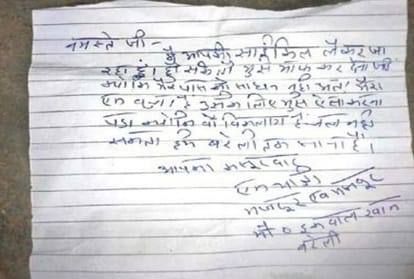 नमस्ते जी -
मैं आपकी साईकिल लेकर जा
रहा हूं। हो सके तो मुझे माफ कर देना जी
क्योंकि मेरे पास कोई साधन नही है मेरा
एक बच्चा है उसके लिए मुझे ऐसा करना
पड़ा क्योंकि वो विकलांग है चल नही
सकता हमें बरेली तक जाना है।
आपका कसूरवार
एक यात्री
मजदूर एवं मजबूर
मो० इकबाल खान
बरेली